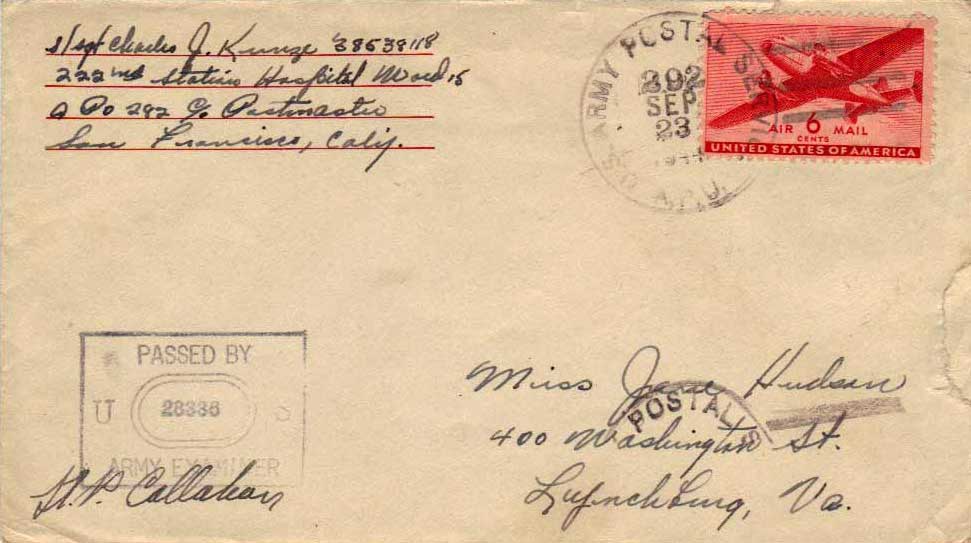 S/Sgt Charles J. Kunze 38538118
222nd Station Hospital Ward 15
A Po 282 c/o Postmaster
San Francisco, Calif.
ARMY POSTAL SERVICE
SEP
23
1944
A.P.O.
AIR 6 MAIL
CENTS
UNITED STATES OF AMERICA
PASSED BY
U 28336 S
ARMY EXAMINER
Callahan
Miss Jane Hudson
POSTAL
400 Washington St.
Lynchburg, Va.